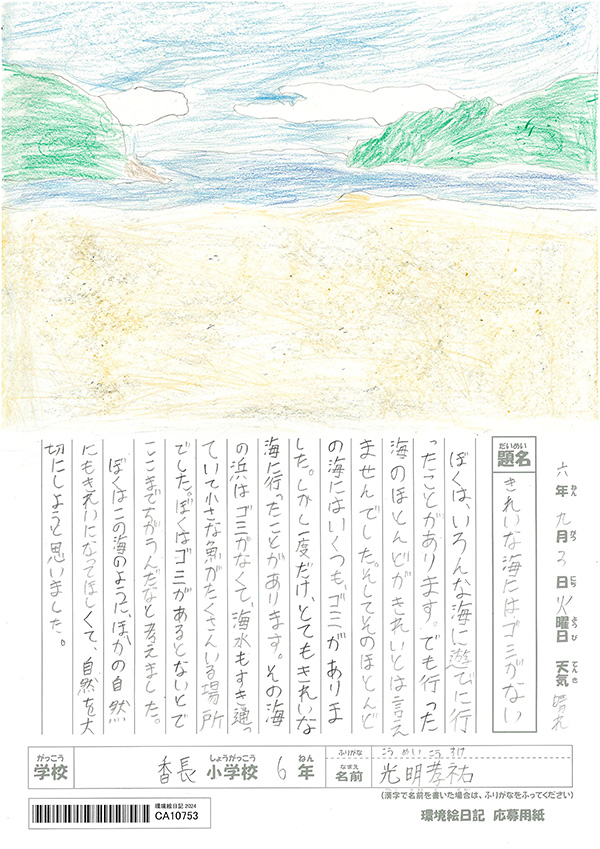 六年 九月 3日 火曜日 天気 晴れ
ねん がつ にち ようび てんき
だいめい
題名
きれいな海にはゴミがない
ぼくは、いろんな海に遊びに行
ったことがあります。でも行った
海のほとんどがきれいとは言え
ませんでした。そしてそのほとんど
の海にはいくつも、ゴミがありま
した。しかし一度だけ、とてもきれいな
海に行ったことがあります。その海
の浜はゴミがなくて、海水もすき通っ
ていて小さな魚がたくさんいる場所
でした。ぼくはゴミがあるとないとで
ここまでちがうんだなと考えました。
ぼくはこの海のように、ほかの自然
にもきれいになってほしくて、自然を大
切にしようと思いました。
がっこう
学校
しょうがっこう ねん
香長 小学校 6 年
ふりがな こうめい こうすけ
なまえ
名前 光明孝祐
(漢字で名前を書いた場合は、ふりがなをふってください)
環境絵日記 2024
CA10753
環境絵日記 応募用紙